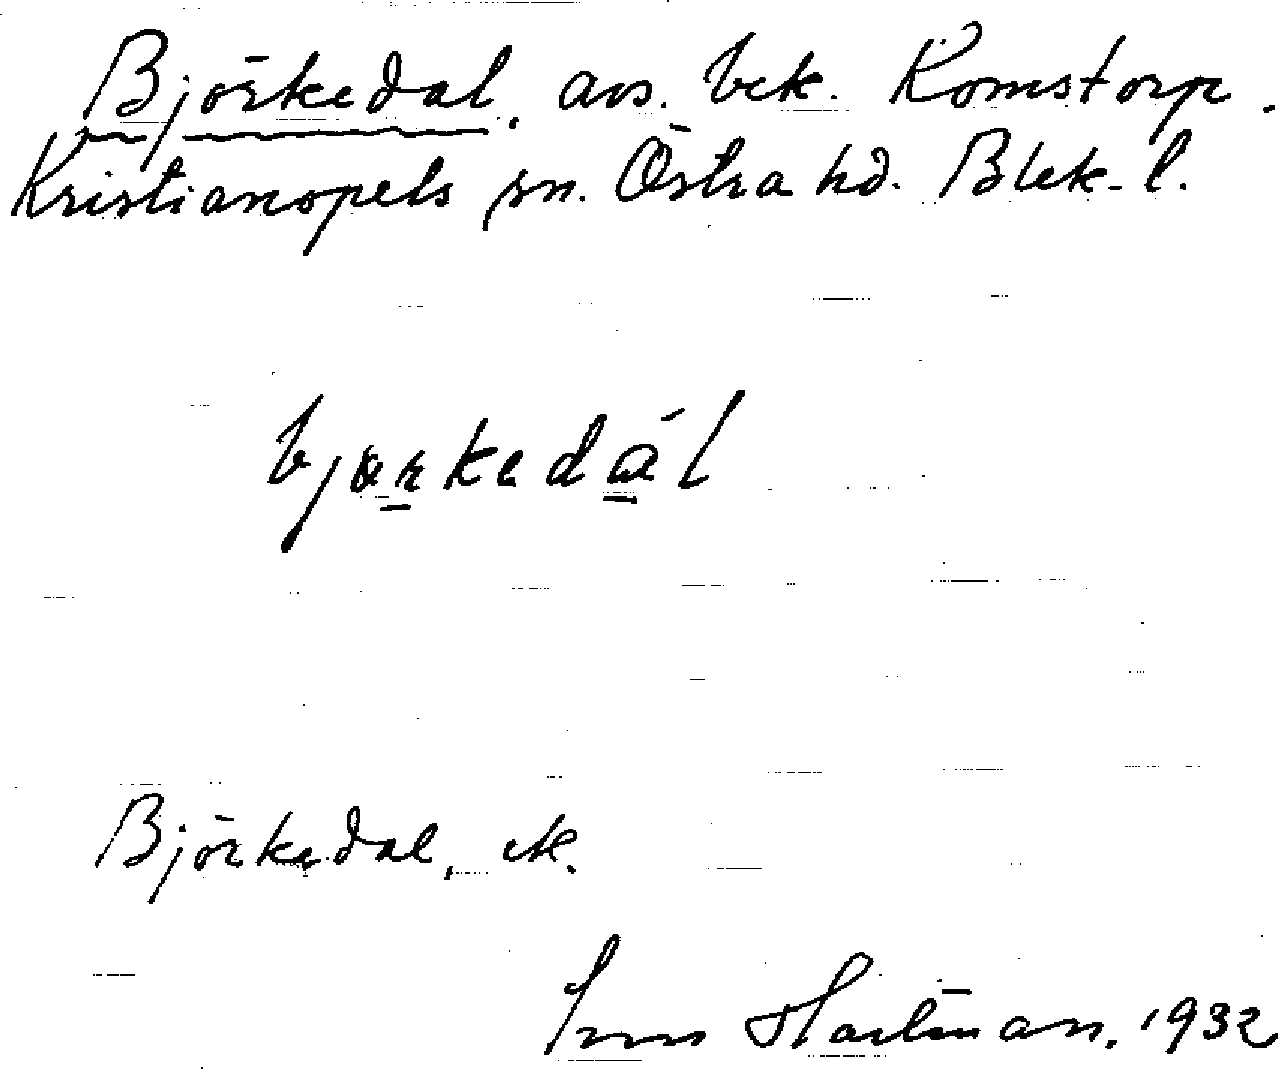 Björkedal, avs. bek. Komstorp.
Kristianopels sn. Östra hd. Blek. l.
bjørkedál
Björkedal, ek.
Hartman. 1932